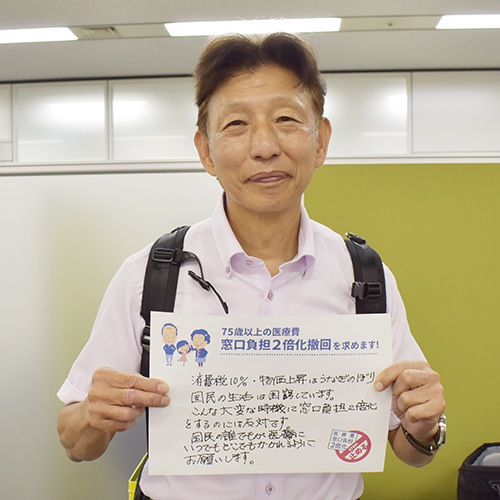 75歳以上の医療費
窓口負担2倍化撤回を求めます!
消費税10%・物価上昇はうなぎのぼり
国民の生活は困窮しています。
こんな大変な時機に窓口負担2倍化
をするのには反対です。
国民の誰でもが医療に
いつでもどこでもかかれるように
お願いします。
医療費
窓口負担
2倍化
止める